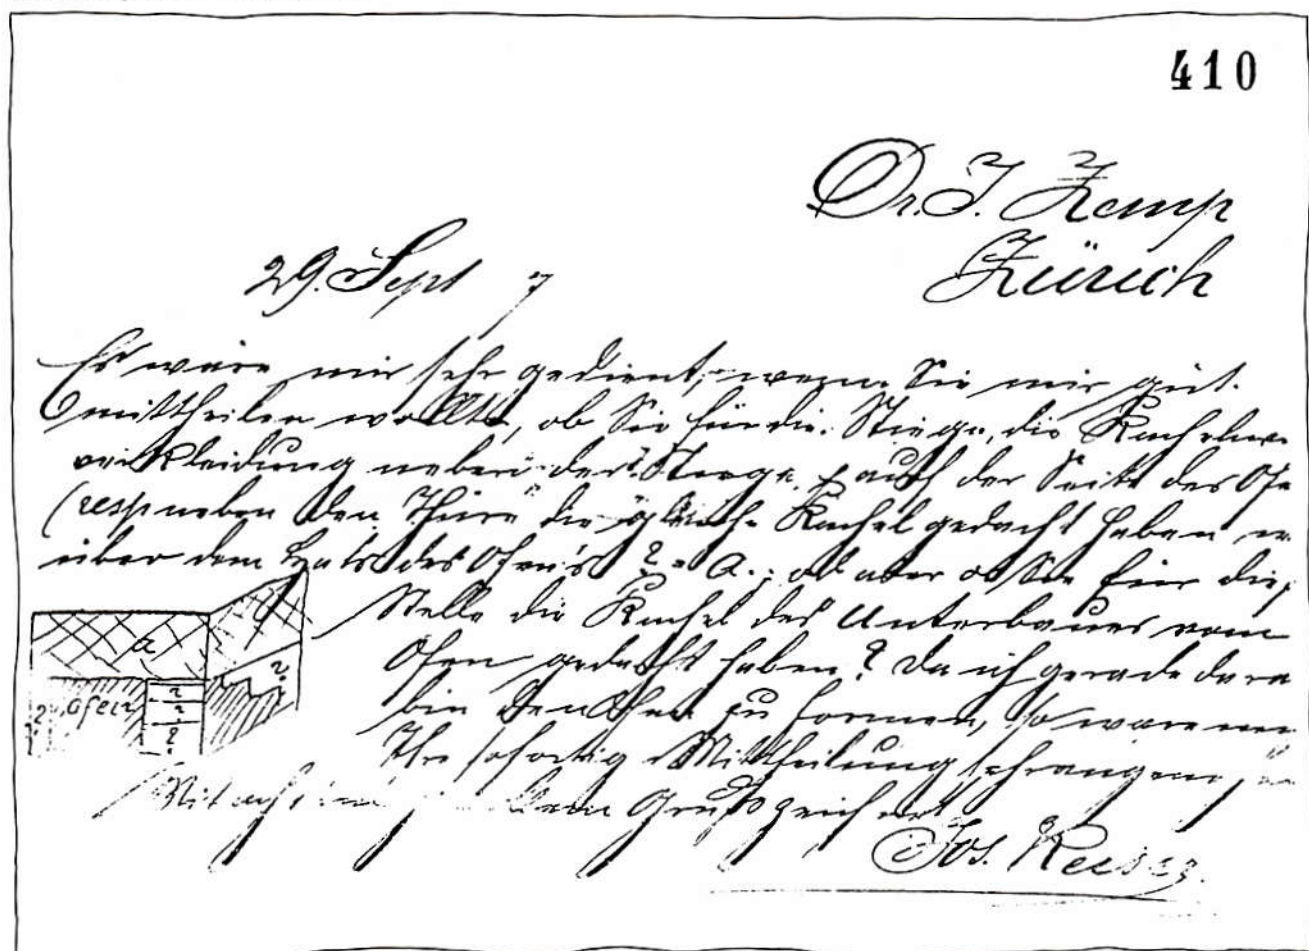 410
Dr. J. Zemp
Zürich
29. Sept 7
Es wäre mir sehr gedient, wenn Sie mir güt.
mittheilen wollten, ob Sie für die Stiege, die Kachel
verkleidung neben der Stiege & auf der Seite des Ofe
(resp neben den Thüre die gleiche Kachel gedacht haben
über dem Sitz des Ofen's ? = a.; od aber ob Sie hier die
Stelle die Kachel des Unterbaues vom
a
Ofen gedacht haben? Da ich gerade dara
Ofen
bin den Ofen zu formen, so wäre
?
Ihre sofortig Mittheilung sehr angenem
Mit Gruß zeichnet
Jos. Keiser.